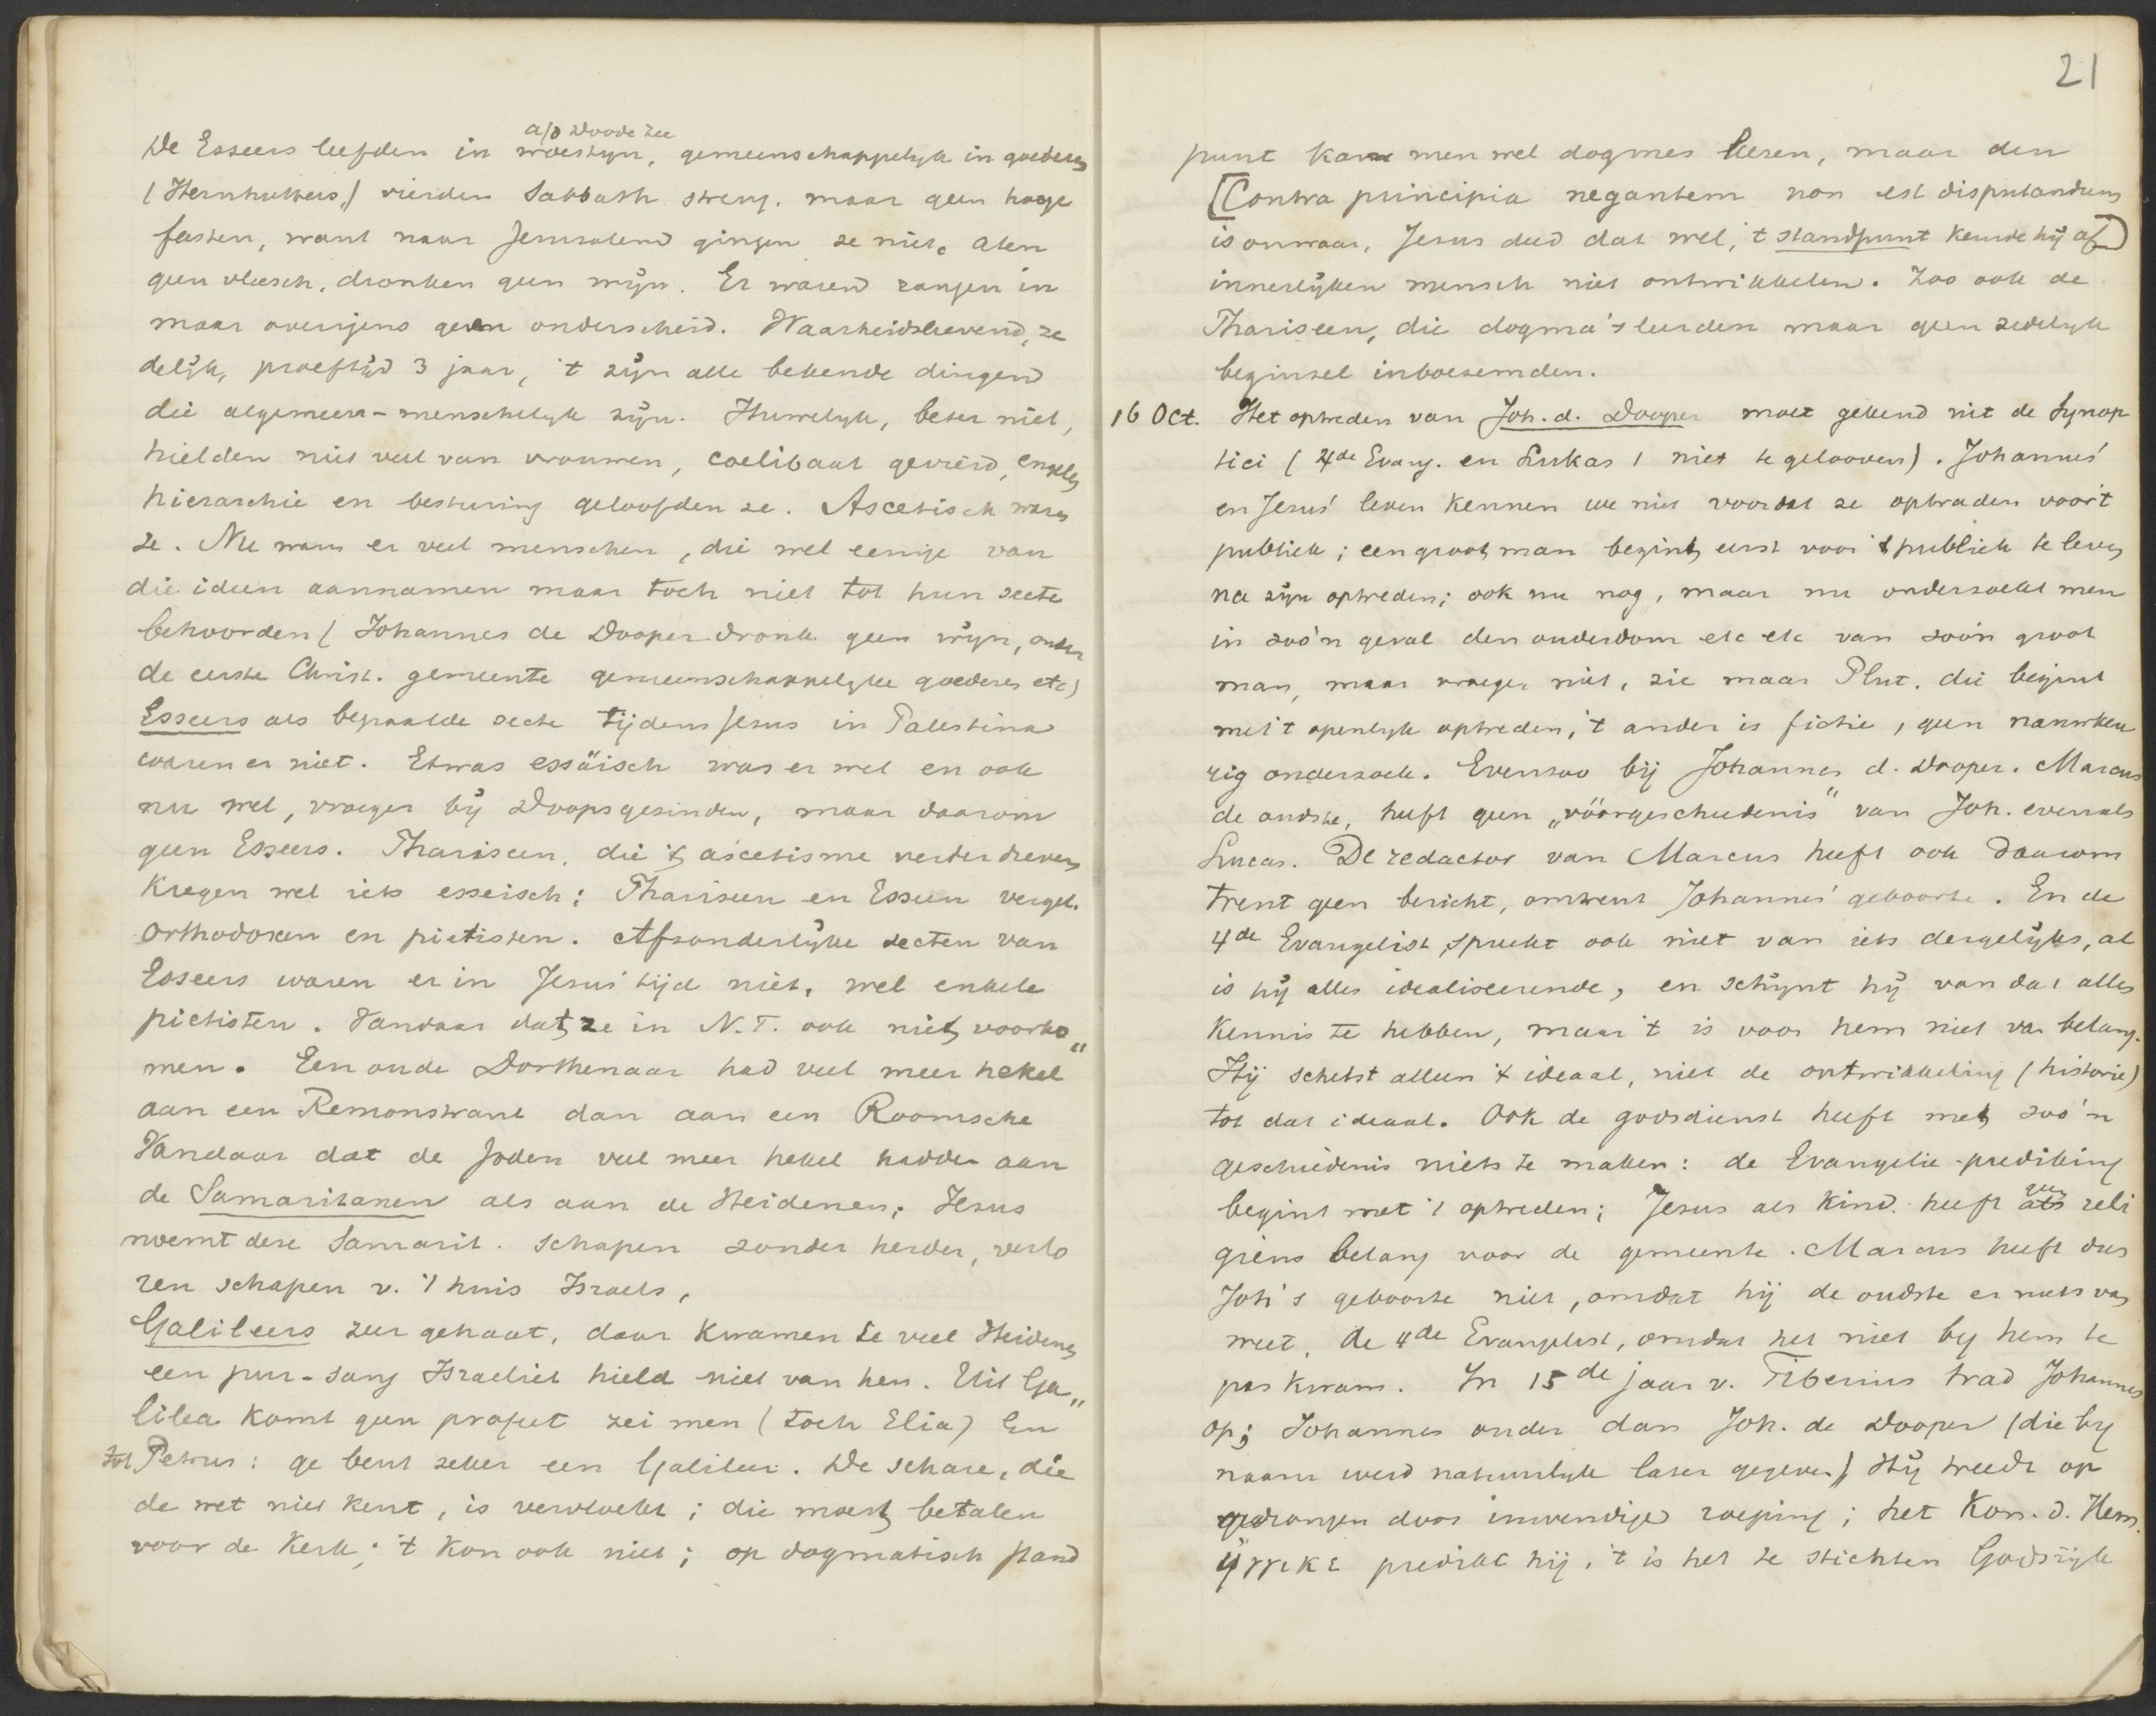 a/d Doode Zee
De Esseers leefden in woestyn, gemeenschappelyk in goederen
(Hernhutters,) vierden Sabbath streng. maar geen hooge
feesten, want naar Jerusalem gingen ze niet. Aten
geen vleesch, dronken geen wijn. Er waren rangen in
maar overigens geen onderscheid. Waarheidslievend, ze
delijk, proeftijd 3 jaar, 't zijn alle bekende dingen
die algemeen-menschelyk zijn. Huwelyk, beter niet,
hielden niet veel van vrouwen, coelibaat gevierd, engelen
hierarchie en besturing geloofden ze. Ascetisch waren
ze. Nu waren er veel menschen, die wel eenige van
die ideen aannamen maar toch niet tot hun secte
behoorden (Johannes de Dooper dronk geen wijn, onder
de eerste Christ. gemeente gemeenschappelyke goederen etc)
Esseers als bepaalde secte tijdens Jesus in Palestina
waren er niet. Etwas essäisch was er wel en ook
nu wel, vroeger bij Doopsgezinden, maar daarom
geen Esseers. Phariseen, die 't ascetisme verder dreven
kregen wel iets esseisch: Phariseen en Esseen vergel.
orthodoxen en pietisten. Afzonderlijke secten van
Esseers waren er in Jesus' tijd niet, wel enkele
pietisten. Vandaar dat ze in N.T. ook niet voorko„
men. Een oude Dorthenaar had veel meer hekel
aan een Remonstrant dan aan een Roomsche
Vandaar dat de Joden veel meer hekel hadden aan
de Samaritanen als aan de Heidenen; Jesus
noemt deze Samarit. schapen zonder herder, verlo
ren schapen v. 't huis Israels,
Galileers zeer gehaat, daar kwamen te veel Heidenen
een pur-sang Israeliet hield niet van hen. Uit Ga„
lilea komt geen profeet zei men (toch Elia) En
tot Petrus: ge bent zeker een Galileer. De schare, die
de wet niet kent, is vervloekt; die moest betalen
voor de Kerk; 't kon ook niet; op dogmatisch stand
21
punt kan men wel dogmes leeren, maar den
[Contra principia negantem non est disputandum
is onwaar, Jesus deed dat wel, 't standpunt keurde hij af]
innerlijken mensch niet ontwikkelen. Zoo ook de
Phariseen, die dogma's leerden maar geen zedelyk
beginsel inboezemden.
16 Oct. Het optreden van Joh. d. Dooper moet gekend uit de Synop
tici (4de Evang. en Lukas 1 niet te gelooven). Johannes'
en Jesus' leven kennen we niet voordat ze optraden voor 't
publiek; een groot man begint eerst voor 't publiek te leven
na zijn optreden; ook nu nog, maar nu onderzoekt men
in zoo'n geval den ouderdom etc etc van zoo'n groot
man, maar vroeger niet, zie maar Plut. die begint
met 't openlyk optreden, 't ander is fictie, geen nauwkeu
rig onderzoek. Evenzoo bij Johannes d. Dooper. Marcus
de oudste, heeft geen „vóórgeschiedenis" van Joh. evenals
Lucas. De redactor van Marcus heeft ook daarom
trent geen bericht, omtrent Johannes' geboorte. En de
4de Evangelist spreekt ook niet van iets dergelijks, al
is hij alles idealiseerende, en schijnt hij van dat alles
kennis te hebben, maar 't is voor hem niet van belang.
Hij schetst alleen 't ideaal, niet de ontwikkeling (historie)
tot dat ideaal. Ook de godsdienst heeft met zoo'n
geschiedenis niets te maken: de Evangelie-prediking
begint met 't optreden; Jesus als kind heeft als geen reli
gieus belang voor de gemeente. Marcus heeft dus
Joh's geboorte niet, omdat hij de oudste er niets van
weet, de 4de Evangelist, omdat het niet by hem te
pas kwam. In 15de jaar v. Tiberius trad Johannes
op; Johannes ander dan Joh. de Dooper (die by
naam werd natuurlyk later gegeven) Hij treedt op
gedrongen door inwendige roeping; het Kon. d. Hem.
ἤγγικε predikt hij, 't is het te stichten Godsrijk